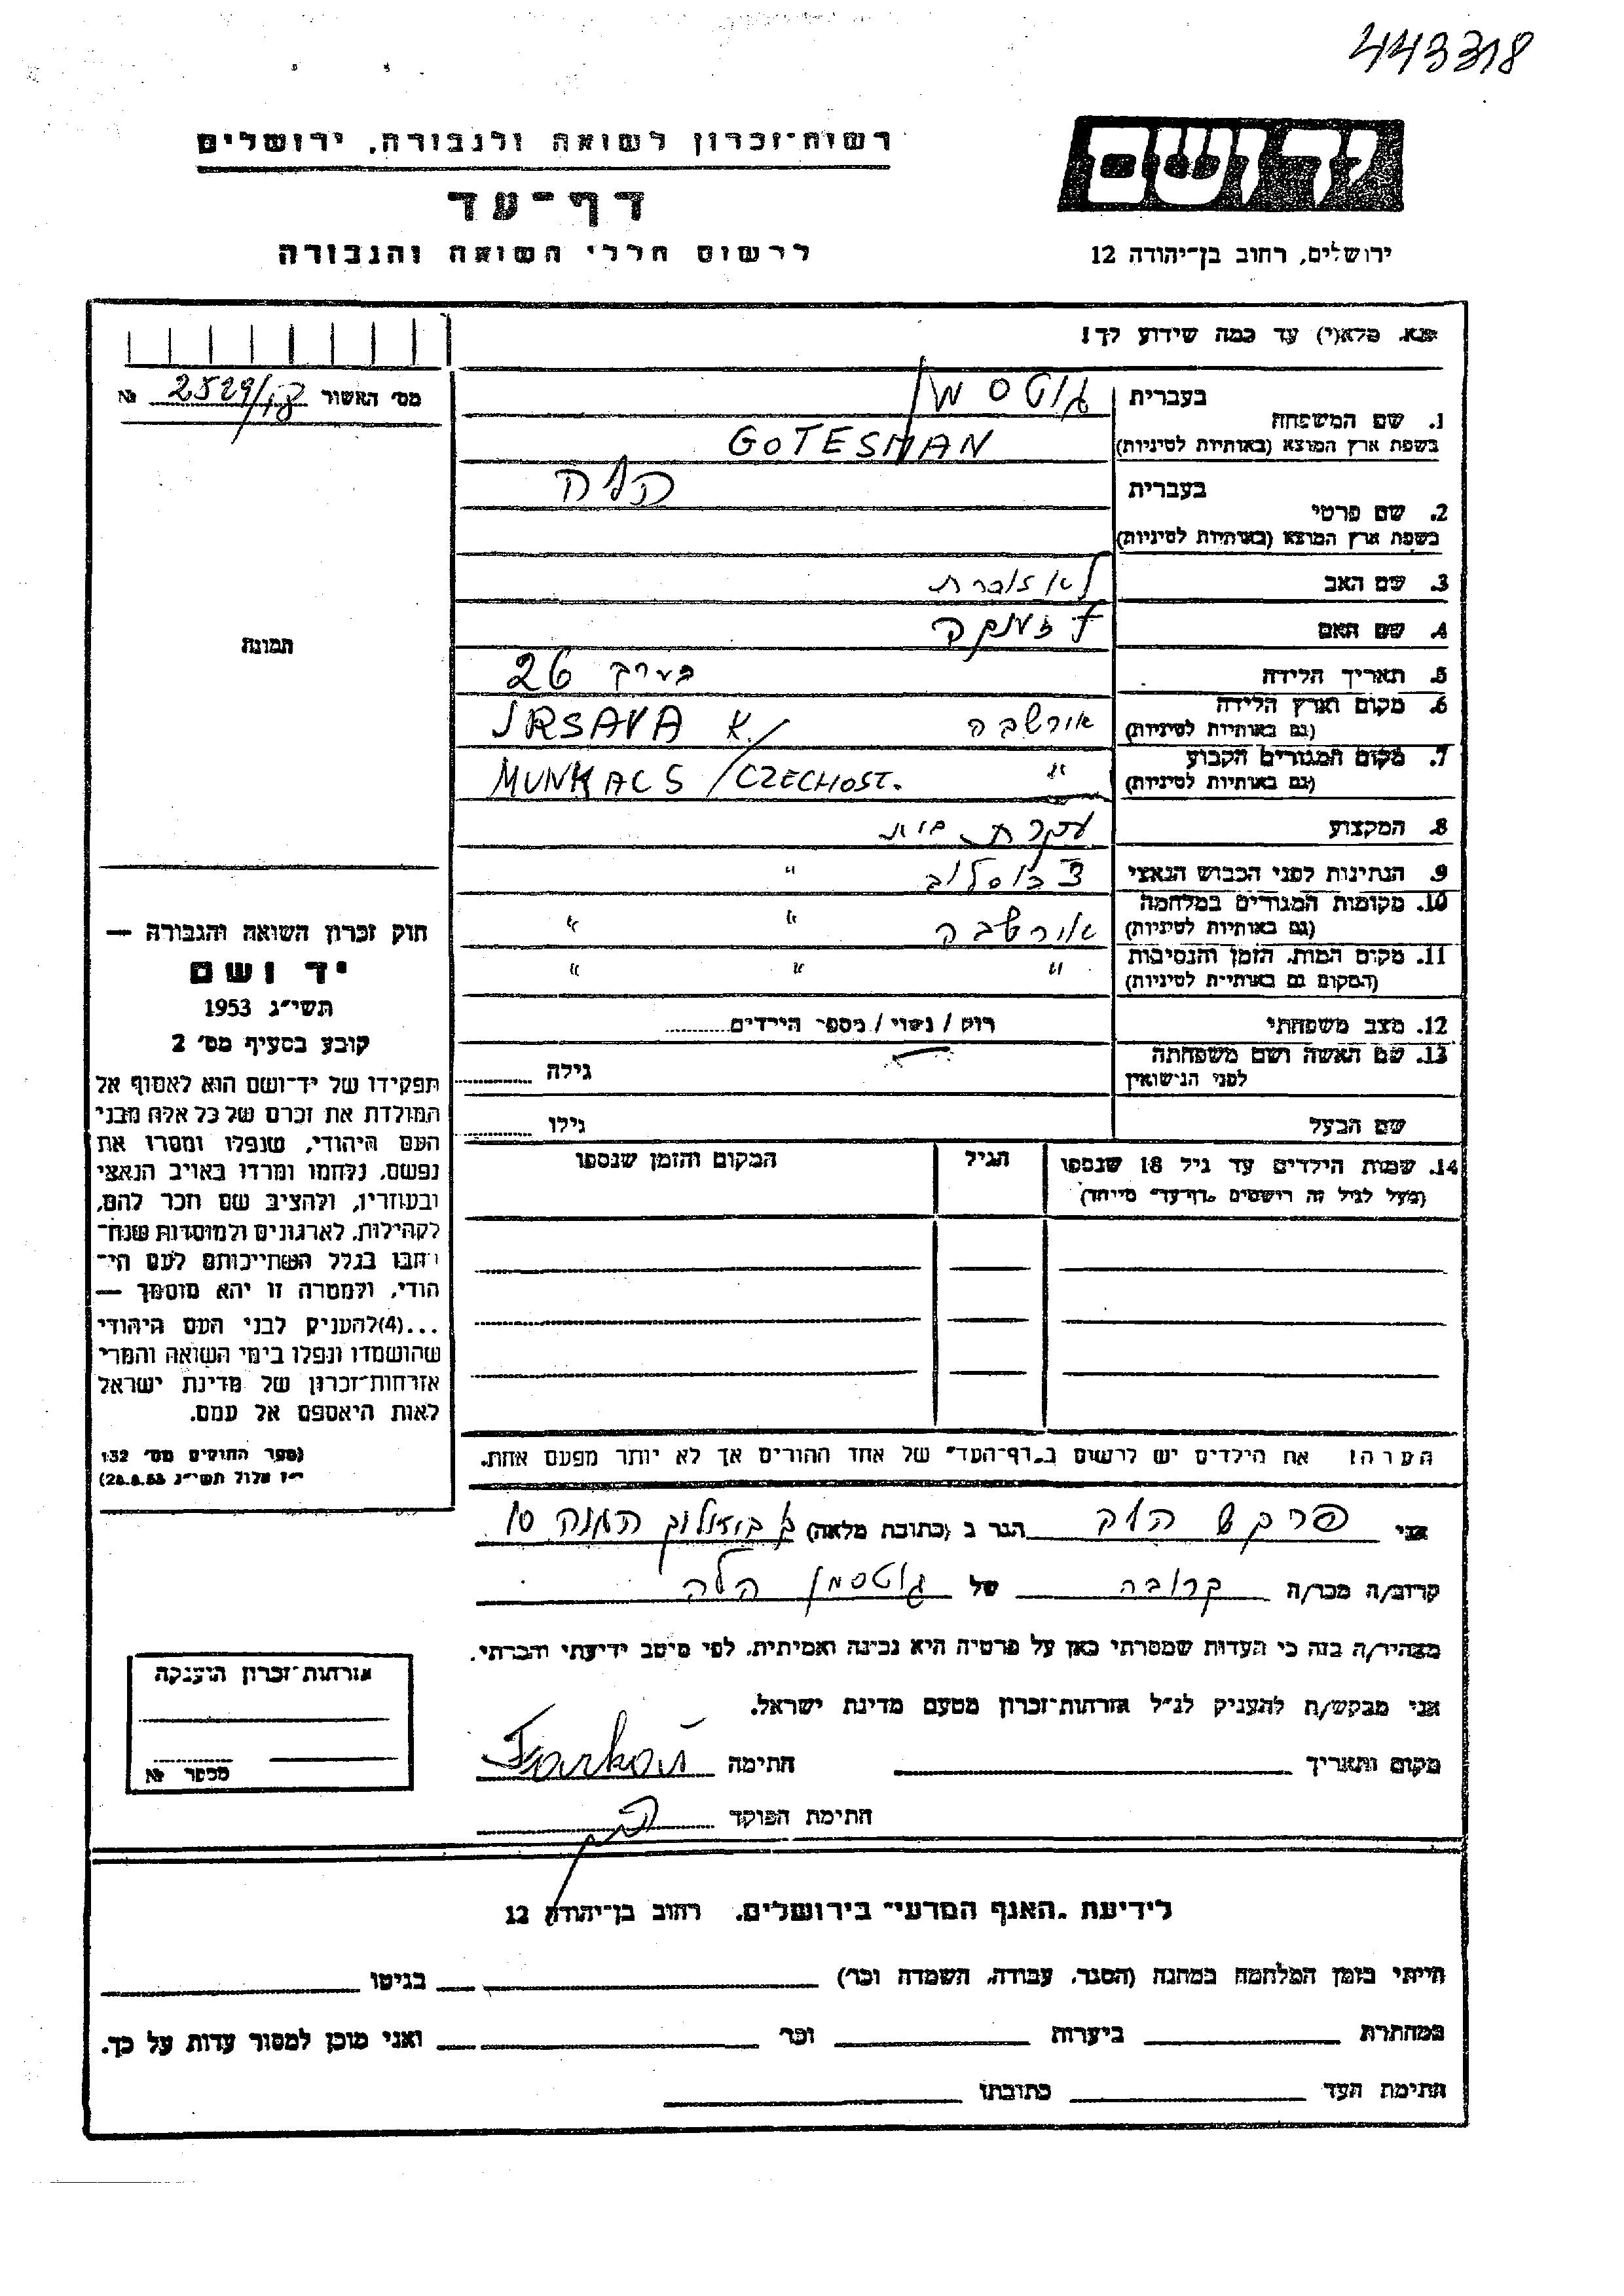 443318
רשות־זכרון לשואה ולגבורה, ירושלים
דף־עד
לרשום חללי השואה והגבורה
יד ושם
ירושלים, רחוב בן־יהודה 12
נא מלא(י) עד כמה שידוע לך!
מס׳ האשור 2529/ № 
1. שם המשפחה
בעברית גוטסמן
בשפת ארץ המוצא (באותיות לטיניות) GOTESMAN
2. שם פרטי
בעברית הלה
בשפת ארץ המוצא (באותיות לטיניות)
3. שם האב לא זוכרת
4. שם האם
5. תאריך הלידה בערך 26
6. מקום וארץ הלידה אורשבה IRSAVA K/
(גם באותיות לטיניות)
7. מקום המגורים הקבוע " MUNKACS / CZECHOSL.
(גם באותיות לטיניות)
8. המקצוע עקרת בית
9. הנתינות לפני הכבוש הנאצי צ׳כוסלוב "
10. מקומות המגורים במלחמה אורשבה " "
(גם באותיות לטיניות)
11. מקום המות, הזמן והנסיבות " " "
(המקום גם באותיות לטיניות)
12. מצב משפחתי רווק / נשוי / מספר הילדים
13. שם האשה ושם משפחתה
לפני הנישואין גילה
שם הבעל גילו
14. שמות הילדים עד גיל 18 שנספו הגיל המקום והזמן שנספו
(מעל לגיל זה רושמים "דף־עד" מיוחד)
הערה: את הילדים יש לרשום ב"דף־העד" של אחד ההורים אך לא יותר מפעם אחת.
תמונה
חוק זכרון השואה והגבורה —
יד ושם
תשי״ג 1953
קובע בסעיף מס׳ 2
תפקידו של יד־ושם הוא לאסוף אל
המולדת את זכרם של כל אלה מבני
העם היהודי, שנפלו ומסרו את
נפשם, נלחמו ומרדו באויב הנאצי
ובעוזריו, ולהציב שם וזכר להם,
לקהילות, לארגונים ולמוסדות שנח־
רבו בגלל השתייכותם לעם הי־
הודי, ולמטרה זו יהא מוסמך —
...(4) להעניק לבני העם היהודי
שהושמדו ונפלו בימי השואה והמרי
אזרחות־זכרון של מדינת ישראל
לאות היאספם אל עמם.
(ספר החוקים מס׳ 132
י״ז אלול תשי״ג 28.8.53)
אני פרקש הגר ב (כתובת מלאה) ההגנה 10
קרוב/ה מכר/ה קרובה של גוטסמן הלה
מצהיר/ה בזה כי העדות שמסרתי כאן על פרטיה היא נכונה ואמיתית, לפי מיטב ידיעתי והכרתי.
אני מבקש/ת להעניק לנ״ל אזרחות־זכרון מטעם מדינת ישראל.
מקום ותאריך חתימה Farkaš
חתימת הפוקד
אזרחות־זכרון הוענקה
מספר №
לידיעת "האגף המדעי" בירושלים, רחוב בן־יהודה 12
הייתי בזמן המלחמה במחנה (הסגר, עבודה, השמדה וכו׳) בגיטו
במחתרת ביערות וכו׳ ואני מוכן למסור עדות על כך.
חתימת העד כתובתו